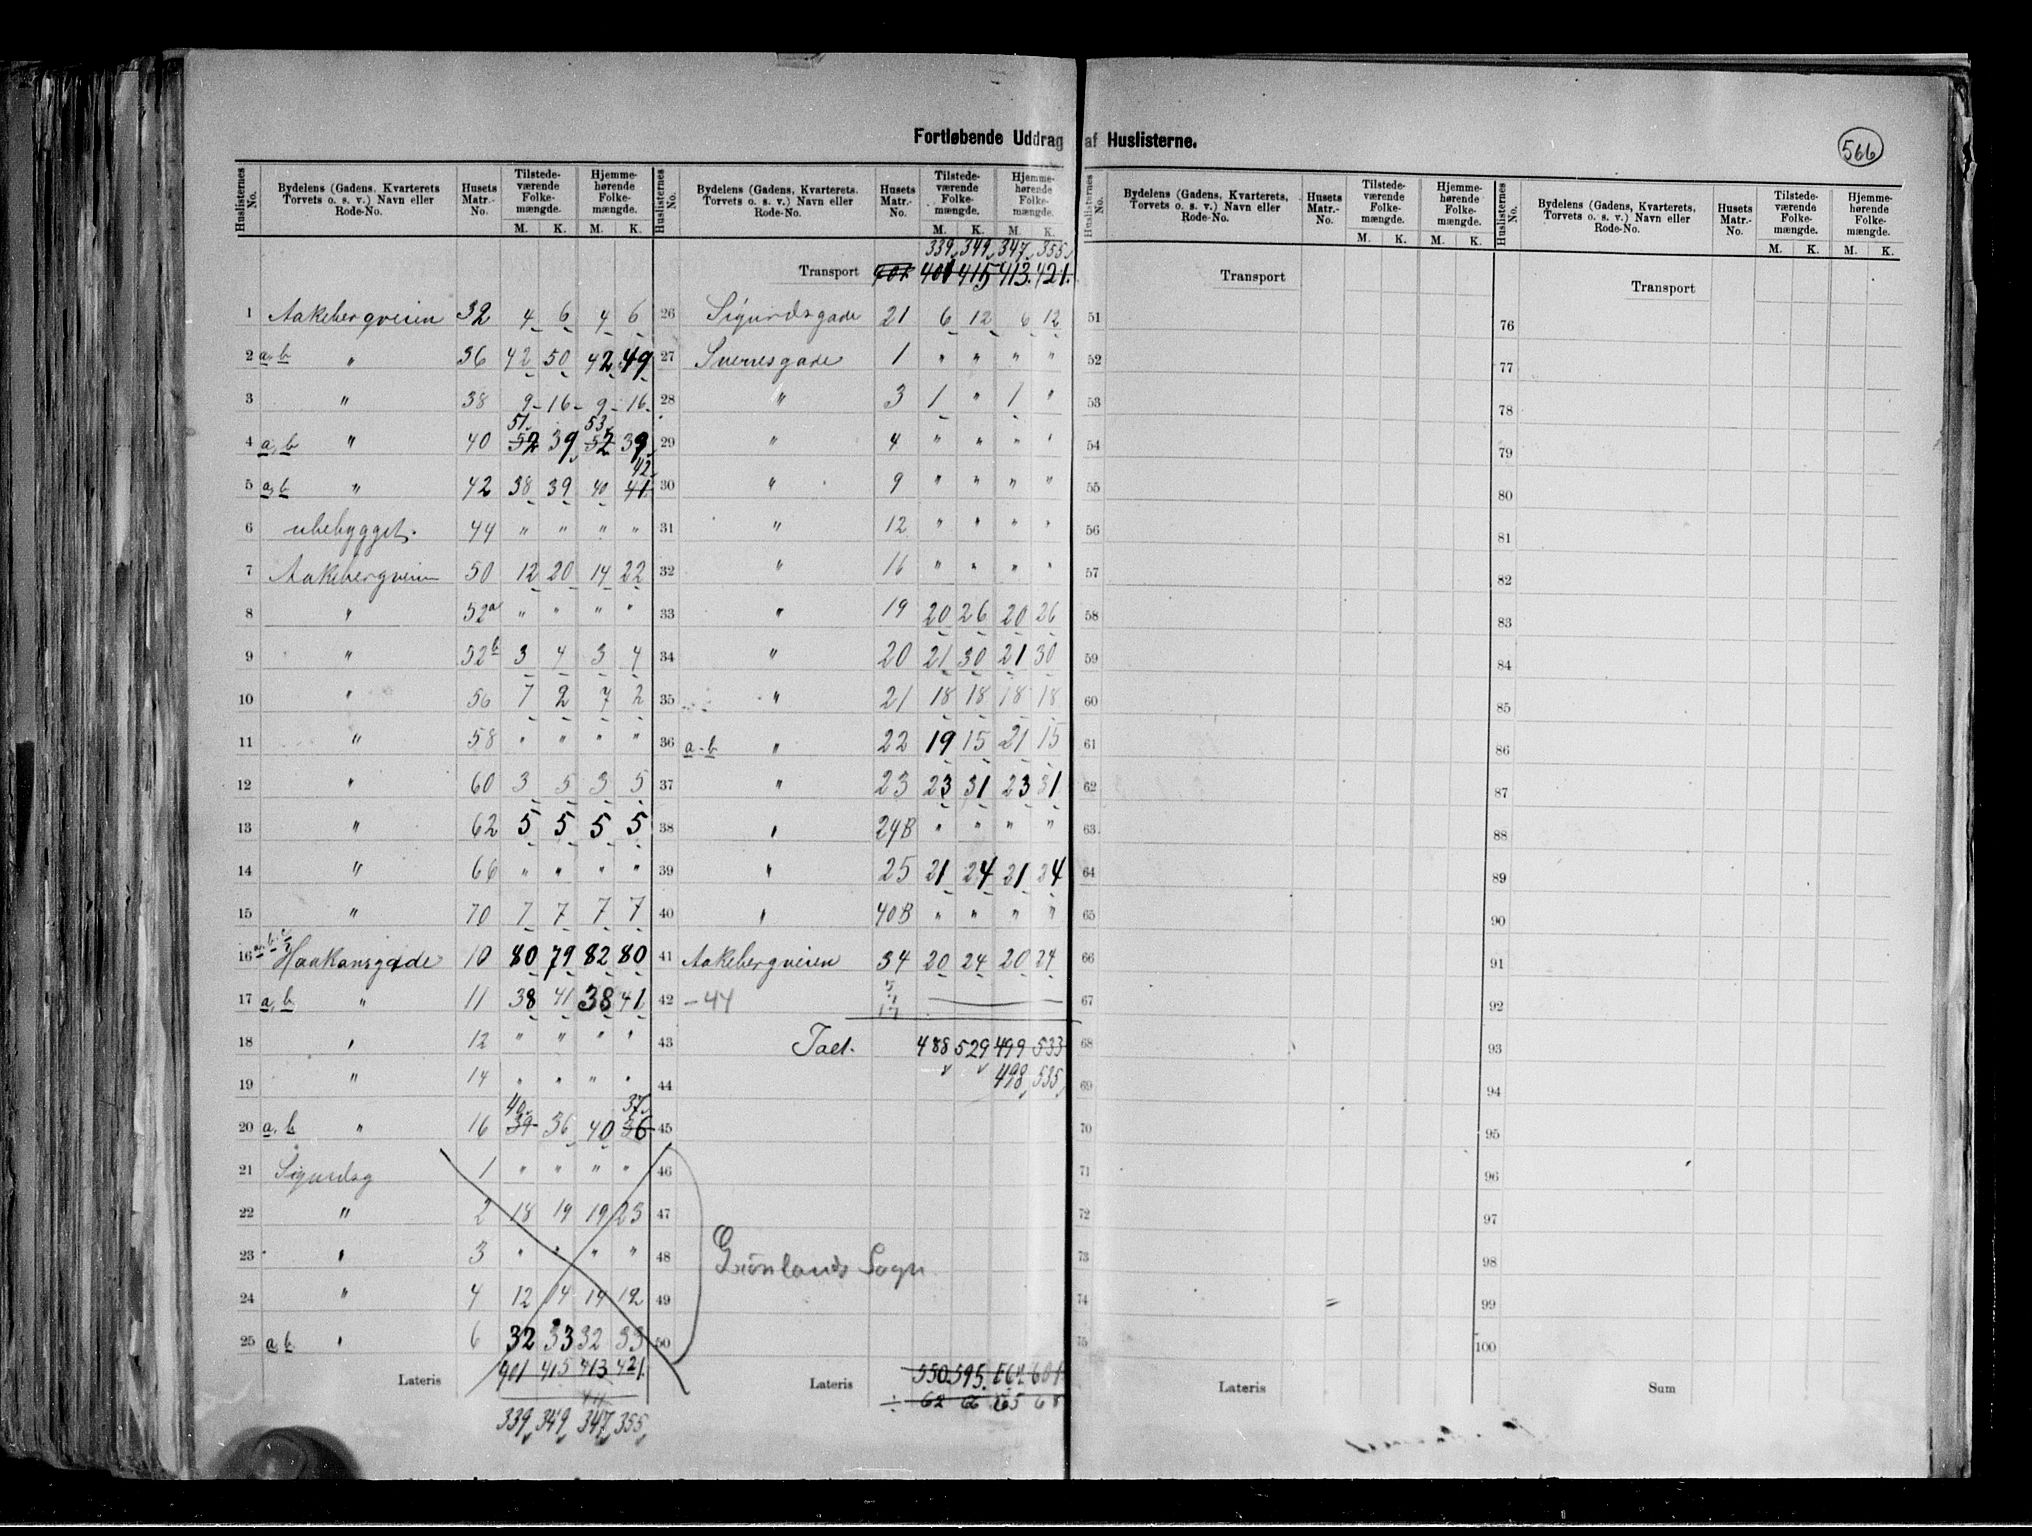 Fortløbende Uddrag af Huslisterne.
566
Huslisternes No. | Bydelens (Gadens, Kvarterets Torvets o. s. v.) Navn eller Rode-No. | Husets Matr.-No. | Tilstedeværende Folkemængde. M. K. | Hjemmehørende Folkemængde. M. K.
1 Aakebergveien 32 4 6 4 6
2 a, b " 36 42 50 42 49
3 " 38 9 16 9 16
51 53
4 a, b " 40 52 39 52 39
42
5 a, b " 42 38 39 40 41
6 ubebygget. 44 " " " "
7 Aakebergveien 50 12 20 14 22
8 " 52a " " " "
9 " 52b 3 4 3 4
10 " 56 7 2 7 2
11 " 58 " " " "
12 " 60 3 5 3 5
13 " 62 5 5 5 5
14 " 66 " " " "
15 " 70 7 7 7 7
16 Haakonsgade 10 80 79 82 80
17 a, b " 11 38 41 38 41
18 " 12 " " " "
19 " 14 " " " "
40 37
20 a, b " 16 39 36 40 36
21 Sigurdsg 1 " " " "
22 " 2 18 19 19 23
23 " 3 " " " "
24 " 4 12 14 14 12
25 a b " 6 32 33 32 33
Lateris 401 415 413 421.
339 349 347 355
Huslisternes No. | Bydelens (Gadens, Kvarterets. Torvets o. s. v.) Navn eller Rode-No. | Husets Matr.-No. | Tilstedeværende Folkemængde. M. K. | Hjemmehørende Folkemængde. M. K.
339 349 347 355
Transport 401 401 415 413. 421.
26 Sigurdsgade 21 6 12 6 12
27 Sverresgade 1 " " " "
28 " 3 1 " 1 "
29 " 4 " " " "
30 " 9 " " " "
31 " 12 " " " "
32 " 16 " " " "
33 " 19 20 26 20 26
34 " 20 21 30 21 30
35 " 21 18 18 18 18
36 a-b " 22 19 15 21 15
37 " 23 23 31 23 31
38 " 24B " " " "
39 " 25 21 24 21 24
40 " 40B " " " "
41 Aakebergveien 34 20 24 20 24
42 -44
43 Talt. 488 529 499 533
44 498 535
45
46
47
48 Grønlands Sogn
49
50
Lateris 550. 595. 562. 601
÷ 62 66 65 68
Huslisternes No. | Bydelens (Gadens, Kvarterets, Torvets o. s. v.) Navn eller Rode-No. | Husets Matr.-No. | Tilstedeværende Folkemængde. M. K. | Hjemmehørende Folkemængde. M. K.
Transport
51
52
53
54
55
56
57
58
59
60
61
62
63
64
65
66
67
68
69
70
71
72
73
74
75
Lateris
Huslisternes No. | Bydelens (Gadens, Kvarterets, Torvets o. s. v.) Navn eller Rode-No. | Husets Matr.-No. | Tilstedeværende Folkemængde. M. K. | Hjemmehørende Folkemængde. M. K.
Transport
76
77
78
79
80
81
82
83
84
85
86
87
88
89
90
91
92
93
94
95
96
97
98
99
100
Sum